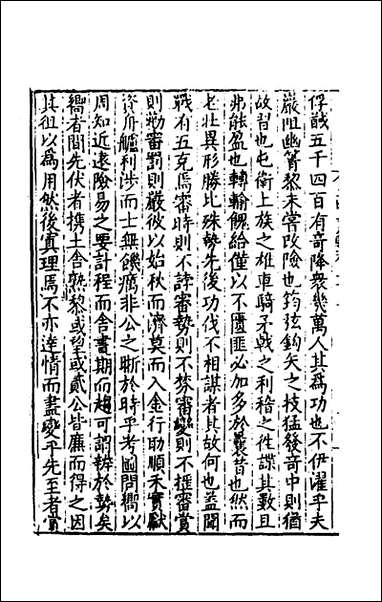 俘馘五千四百有奇降衆幾萬人其爲功也不伊濯乎夫
嚴阻幽箐黎未嘗改險也鈞弦鈎矢之技猛發奇中則猶
故習也屯衛上族之雄車騎矛戟之利稽之徃諜其數且
弗能盈也轉輸餽給僅以不匱匪必加多於曩昔也然而
老壯異形勝比殊勢先後功伐不相謀者其故何也蓋聞
戰有五克焉審時則不誖審勢則不棼審變則不摧審賞
則勸審罰則嚴彼以始秋而濟莫而入金行助順禾實獻
資舟艫利涉而士無饑癘非公之斷於時乎考圖問嚮以
周知近遠險易之要計程而舍晝期而趨可謂辨於勢矣
嚮者間先伏者携土舍熟黎或望或貳公皆廉而得之因
其徂以爲用然後寘理焉不亦達情而盡變乎先至者賞